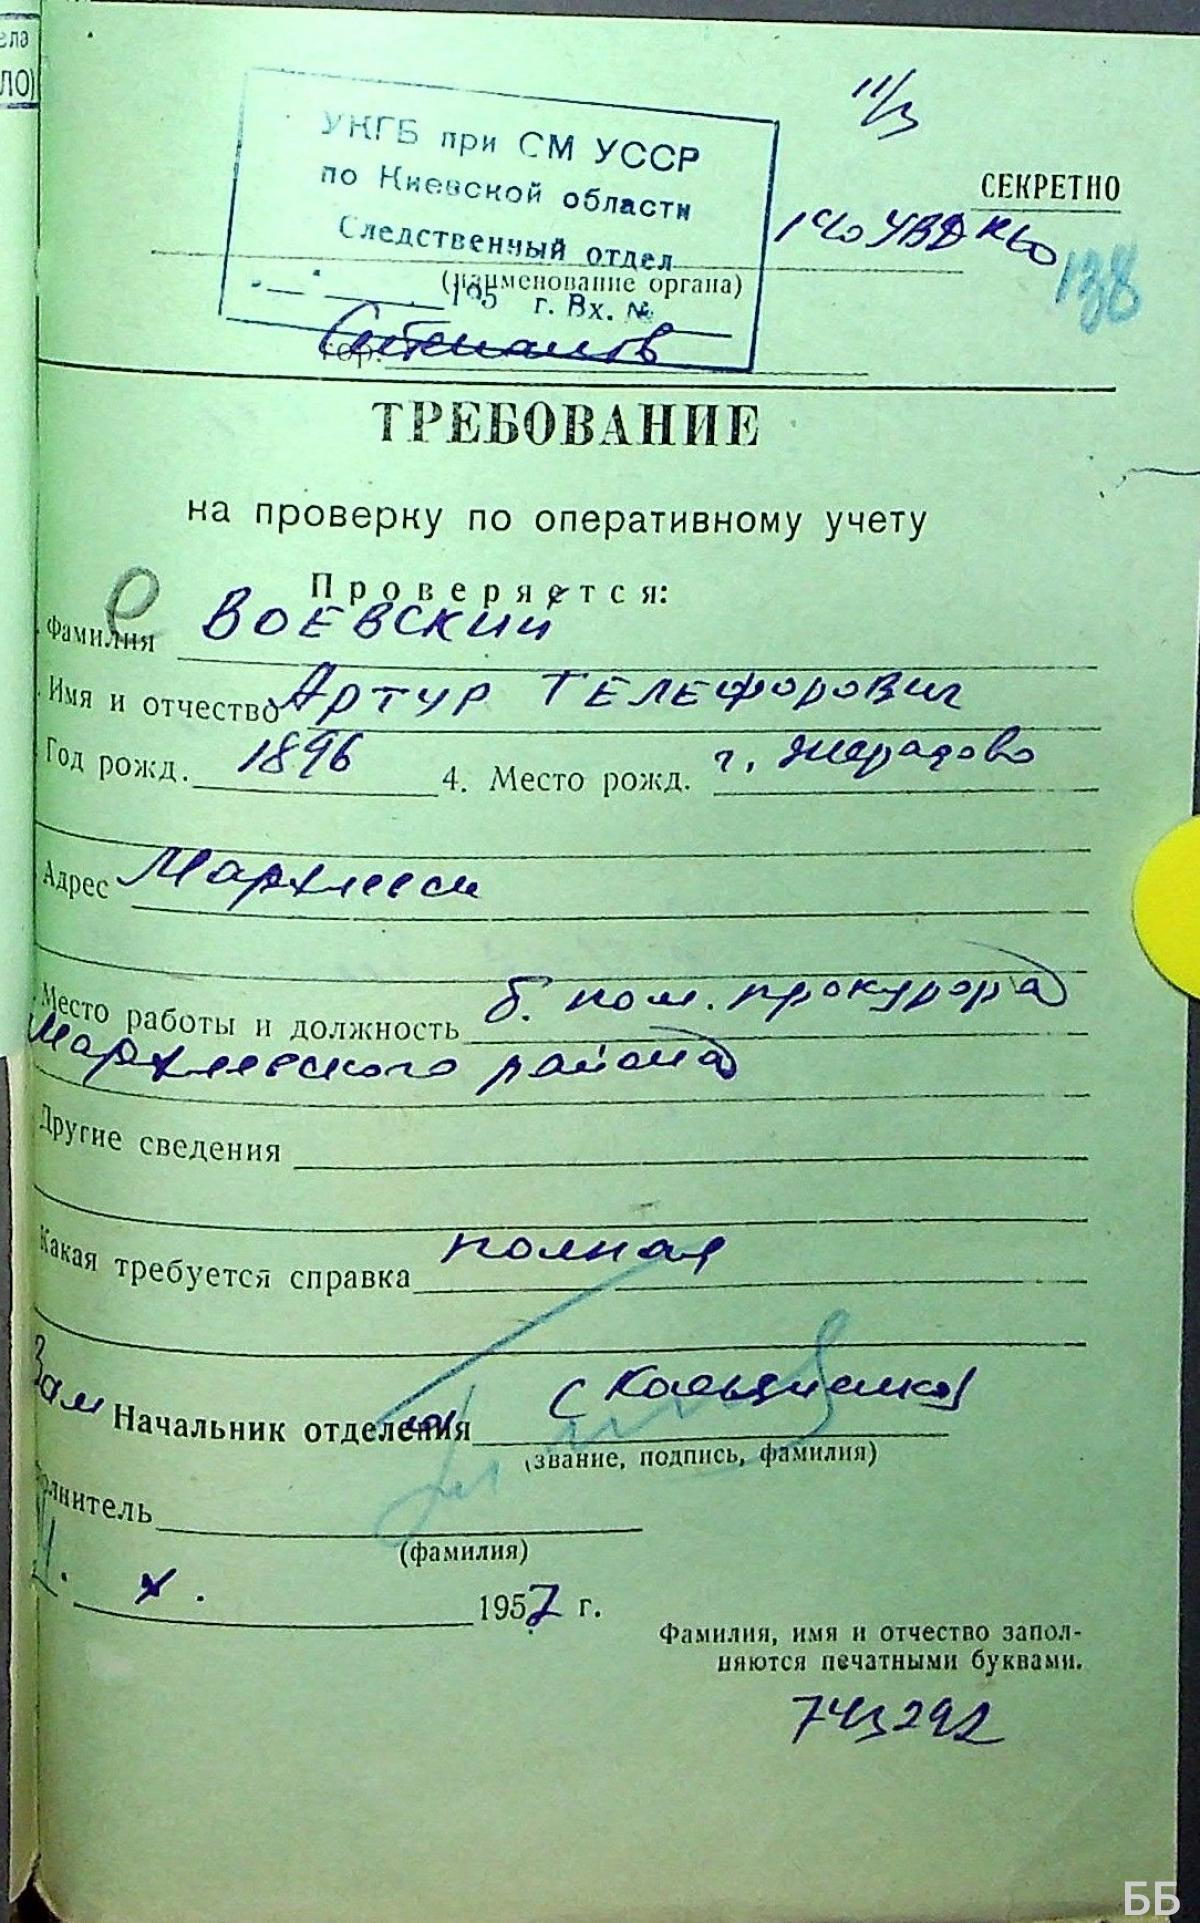 ела
ЛО)
11/3
УКГБ при СМ УССР
по Киевской области
Следственный отдел
СЕКРЕТНО
1 УВД КО
138
(наименование органа)
195 г. Вх. №
гор.
ТРЕБОВАНИЕ
на проверку по оперативному учету
Проверяется:
Фамилия ВОЕВСКИЙ
Имя и отчество АРТУР ТЕЛЕФОРОВИЧ
Год рожд. 1896 4. Место рожд. г. Жерадово
Адрес Мархлевск
Место работы и должность б. пом. прокурора
Мархлевского района
Другие сведения
Какая требуется справка полная
Зам Начальник отделения
(звание, подпись, фамилия)
олнитель
(фамилия)
X. 1957 г.
Фамилия, имя и отчество запол-
няются печатными буквами.
743292
ББ